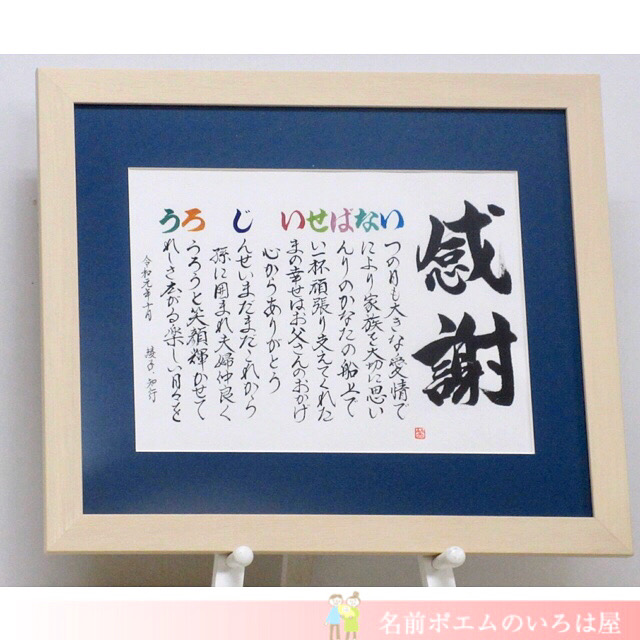 感謝
いつの日も大きな愛情で
なにより家族を大切に思い
ばんりのかなたの船上で
せい一杯頑張り支えてくれた
いまの幸せはお父さんのおかげ
心からありがとう
じんせいまだまだこれから
孫に囲まれ夫婦仲良く
ろうろうと笑顔輝かせて
うれしさ広がる楽しい日々を
令和元年十月
名前ポエムのいろは屋